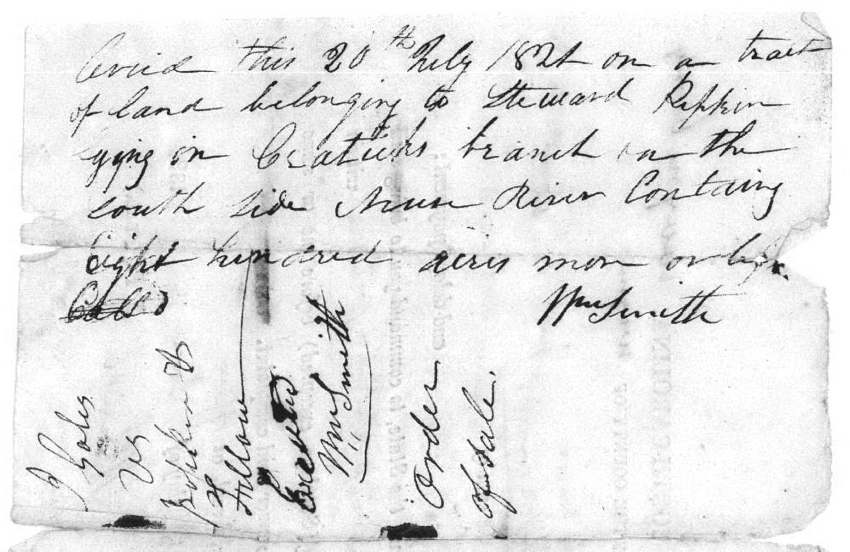 Levied this 20th July 1821 on a tract
of land belonging to Steward Pipkin
lying on Creatichs branch on the
south side Neuse River Containg
Eight hundred acres more or less.
Wm Smith
vs
Pipkin &
Fellow
Executed
Wm Smith
Order
of Sale.